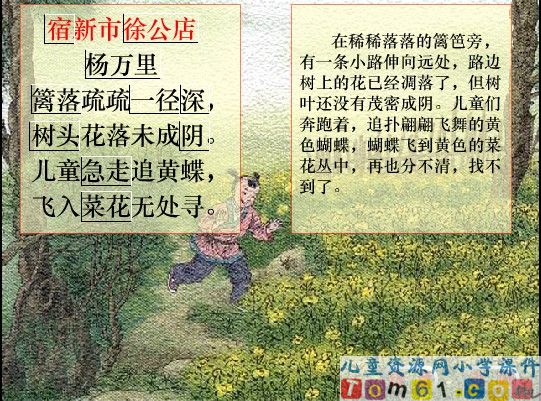 宿新市徐公店
杨万里
篱落疏疏一径深，
树头花落未成阴。
儿童急走追黄蝶，
飞入菜花无处寻。
在稀稀落落的篱笆旁，
有一条小路伸向远处，路边
树上的花已经凋落了，但树
叶还没有茂密成阴。儿童们
奔跑着，追扑翩翩飞舞的黄
色蝴蝶，蝴蝶飞到黄色的菜
花丛中，再也分不清，找不
到了。
儿童资源网小学课件
Tom61.com